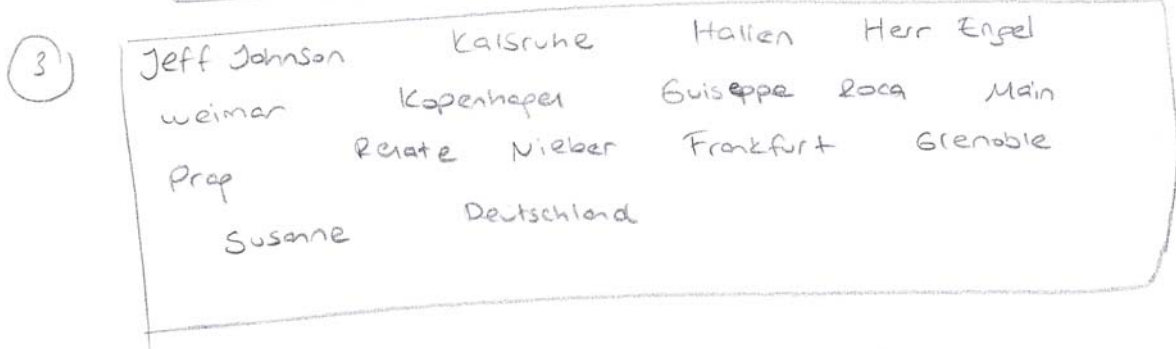 3) Jeff Johnson Kalsruhe Italien Herr Engel
weimar Kopenhagen Guiseppe Roca Main
Prag Renate Nieber Frankfurt Grenoble
Susanne Deutschland